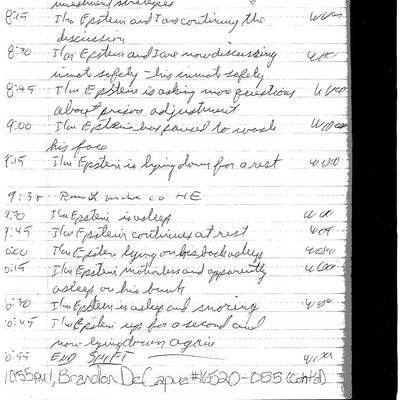 investment strategies
8:15 I/m Epstein and I are continuing the
discussion
8:30 I/m Epstein and I are now discussing
inmate safety - his inmate safety
8:45 I/m Epstein is asking more questions
about prison adjustment
9:00 I/m Epstein has paused to wash
his face
9:15 I/m Epstein is lying down for a rest
9:30
9:30 I/m Epstein is asleep
9:45 I/m Epstein continues at rest
0:00 I/m Epstein lying on his back asleep
0:15 I/m Epstein motionless and apparently
asleep on his bunk
0:30 I/m Epstein is asleep and snoring
0:45 I/m Epstein up for a second and
now lying down again
0:55 END SHIFT
10:55pm, Brandon #16520-055 (Cont'd)